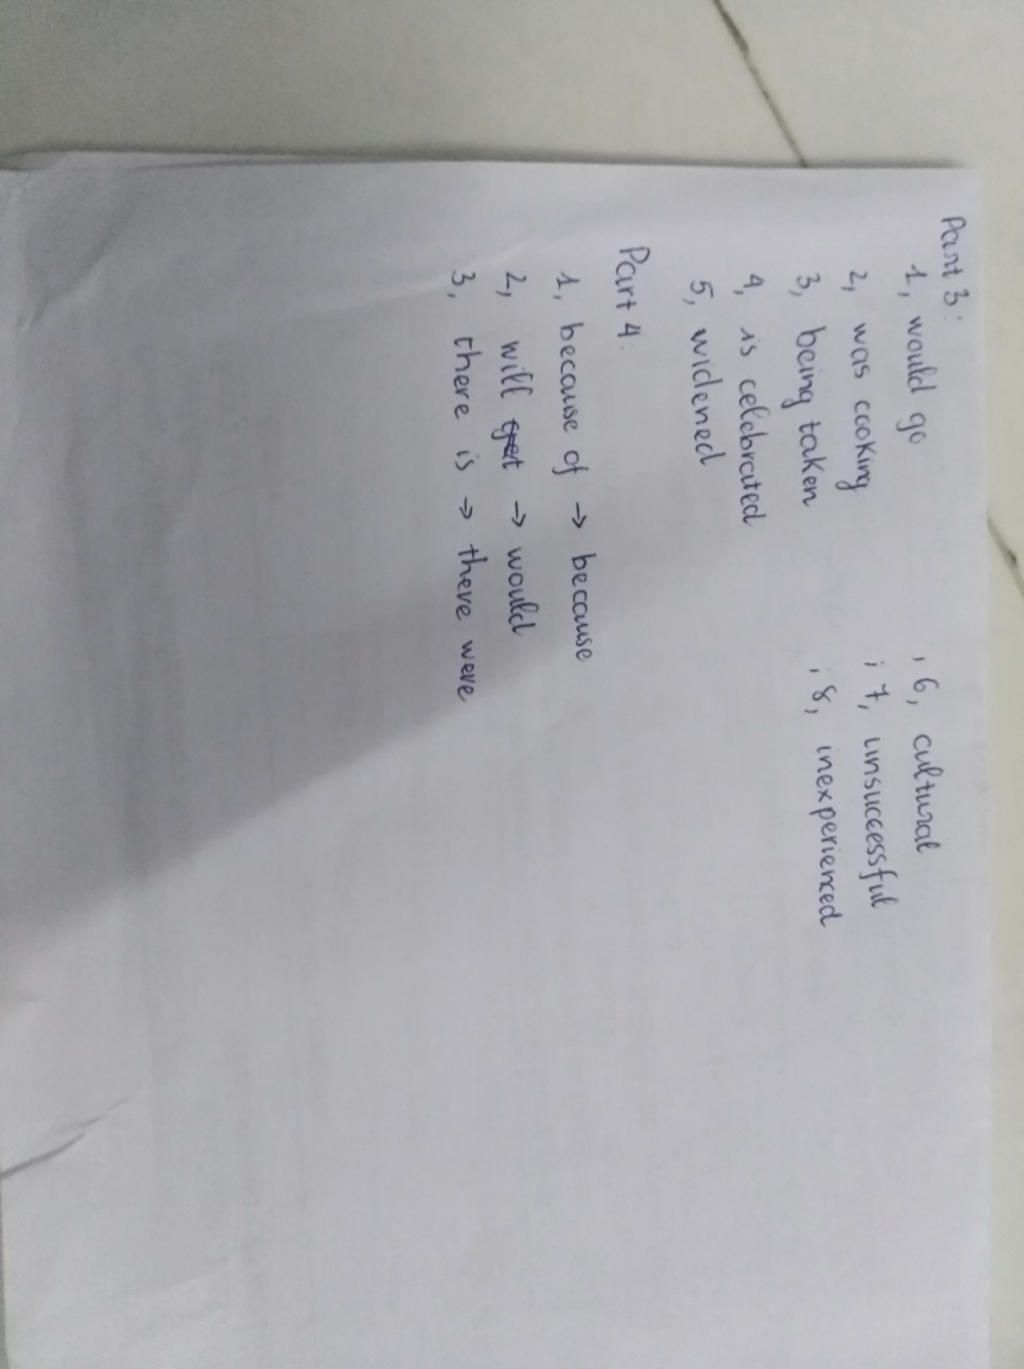 Part 3:
1, would go
2, was cooking
3, being taken
4, is celebrated
5, widened
; 6, cultural
; 7, unsuccessful
; 8, inexperienced
Part 4:
1, because of → because
2, will → would
3, there is → there were